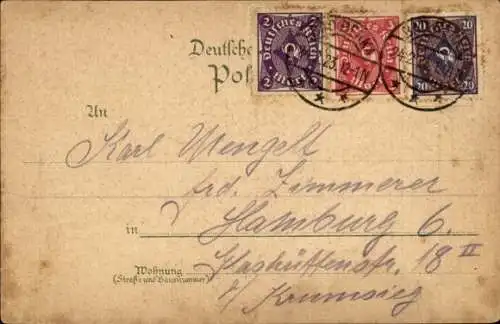 Deutsche
Pos
2 Deutsches Reich 2
20 20
20 20
23.12-1
An
Karl Mengelt
frd. Zimmerer
in Hamburg 6.
Wohnung
(Straße und Hausnummer)
Flaghüttenstr. 18 II
b/ Krumsieg